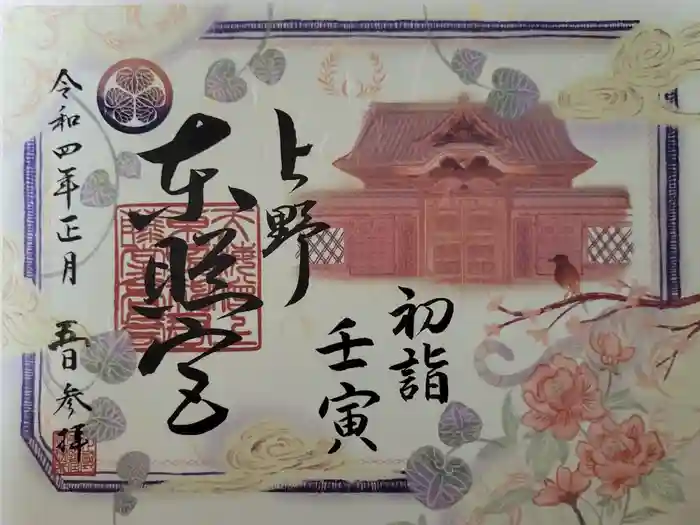 初詣
壬寅
上野
東照宮
令和四年正月五日参拝